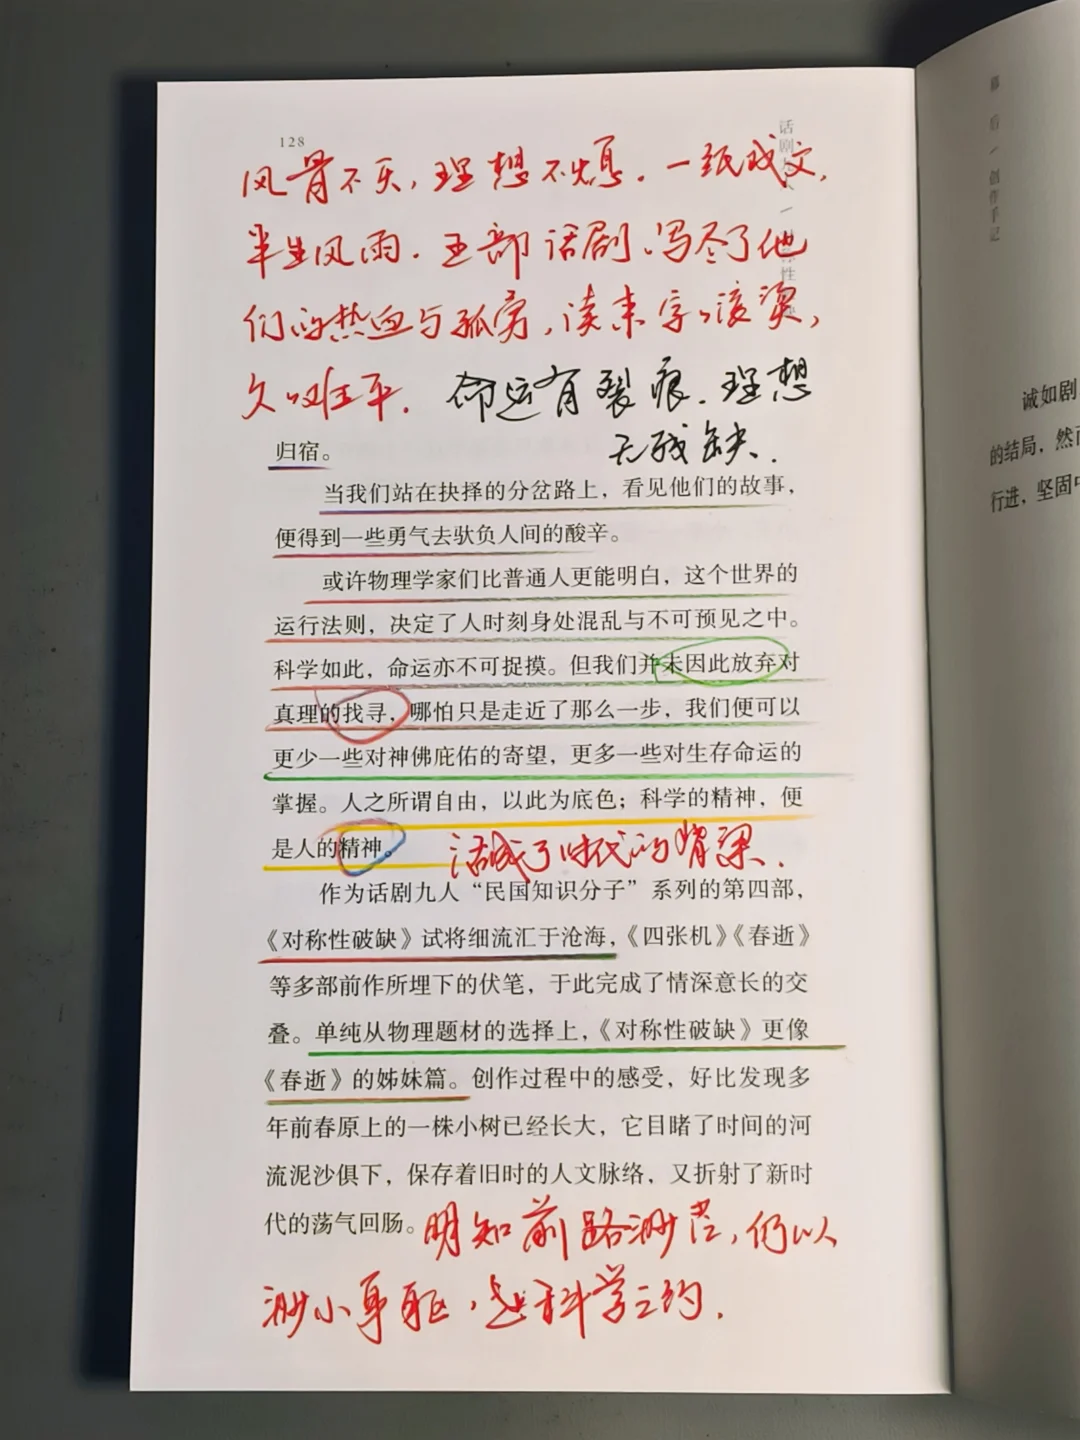 128
风骨不灭，理想不熄。一纸成文，
半生风雨。五部话剧，写尽了他
们的热血与孤勇，读来字字滚烫，
久久难平。命运有裂痕，理想
无残缺。
归宿。
当我们站在抉择的分岔路上，看见他们的故事，
便得到一些勇气去驮负人间的酸辛。
或许物理学家们比普通人更能明白，这个世界的
运行法则，决定了人时刻身处混乱与不可预见之中。
科学如此，命运亦不可捉摸。但我们并未因此放弃对
真理的找寻，哪怕只是走近了那么一步，我们便可以
更少一些对神佛庇佑的寄望，更多一些对生存命运的
掌握。人之所谓自由，以此为底色；科学的精神，便
是人的精神。
活成了时代的脊梁。
作为话剧九人“民国知识分子”系列的第四部，
《对称性破缺》试将细流汇于沧海，《四张机》《春逝》
等多部前作所埋下的伏笔，于此完成了情深意长的交
叠。单纯从物理题材的选择上，《对称性破缺》更像
《春逝》的姊妹篇。创作过程中的感受，好比发现多
年前春原上的一株小树已经长大，它目睹了时间的河
流泥沙俱下，保存着旧时的人文脉络，又折射了新时
代的荡气回肠。
明知前路渺茫，仍以
渺小身躯，赴科学之约。
幕后一创作手记
诚如剧
的结局，然而
行进，坚固中